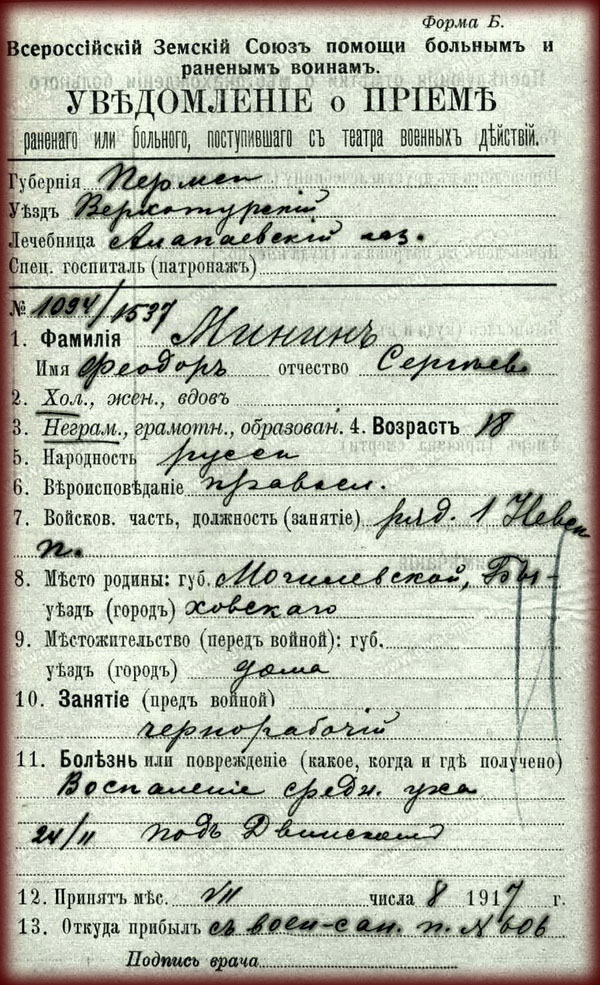 Форма Б.
Всероссійскій Земскій Союзъ помощи больнымъ и
раненымъ воинамъ.
УВѢДОМЛЕНІЕ о ПРІЕМѢ
раненаго или больного, поступившаго съ театра военныхъ дѣйствій.
Губернія Пермск
Уѣздъ Верхотурскій
Лечебница Алапаевскій лаз.
Спец. госпиталь (патронажъ)
№ 1094/1537
1. Фамилія Мининъ
Имя Феодоръ отчество Сергѣев
2. Хол., жен., вдовъ
3. Неграм., грамотн., образован. 4. Возрастъ 18
5. Народность русск
6. Вѣроисповѣданіе правосл.
7. Войсков. часть, должность (занятіе) ряд. 1 Невск
п.
8. Мѣсто родины: губ. Могилевской, Бы-
уѣздъ (городъ) ховскаго
9. Мѣстожительство (передъ войной): губ.
уѣздъ (городъ) дома
10. Занятіе (предъ войной)
чернорабочій
11. Болѣзнь или поврежденіе (какое, когда и гдѣ получено)
Воспаленіе средн. уха
24/II подъ Двинском
12. Принятъ мѣс. VII числа 8 1917 г.
13. Откуда прибылъ съ воен-сан. п. № 606
Подпись врача